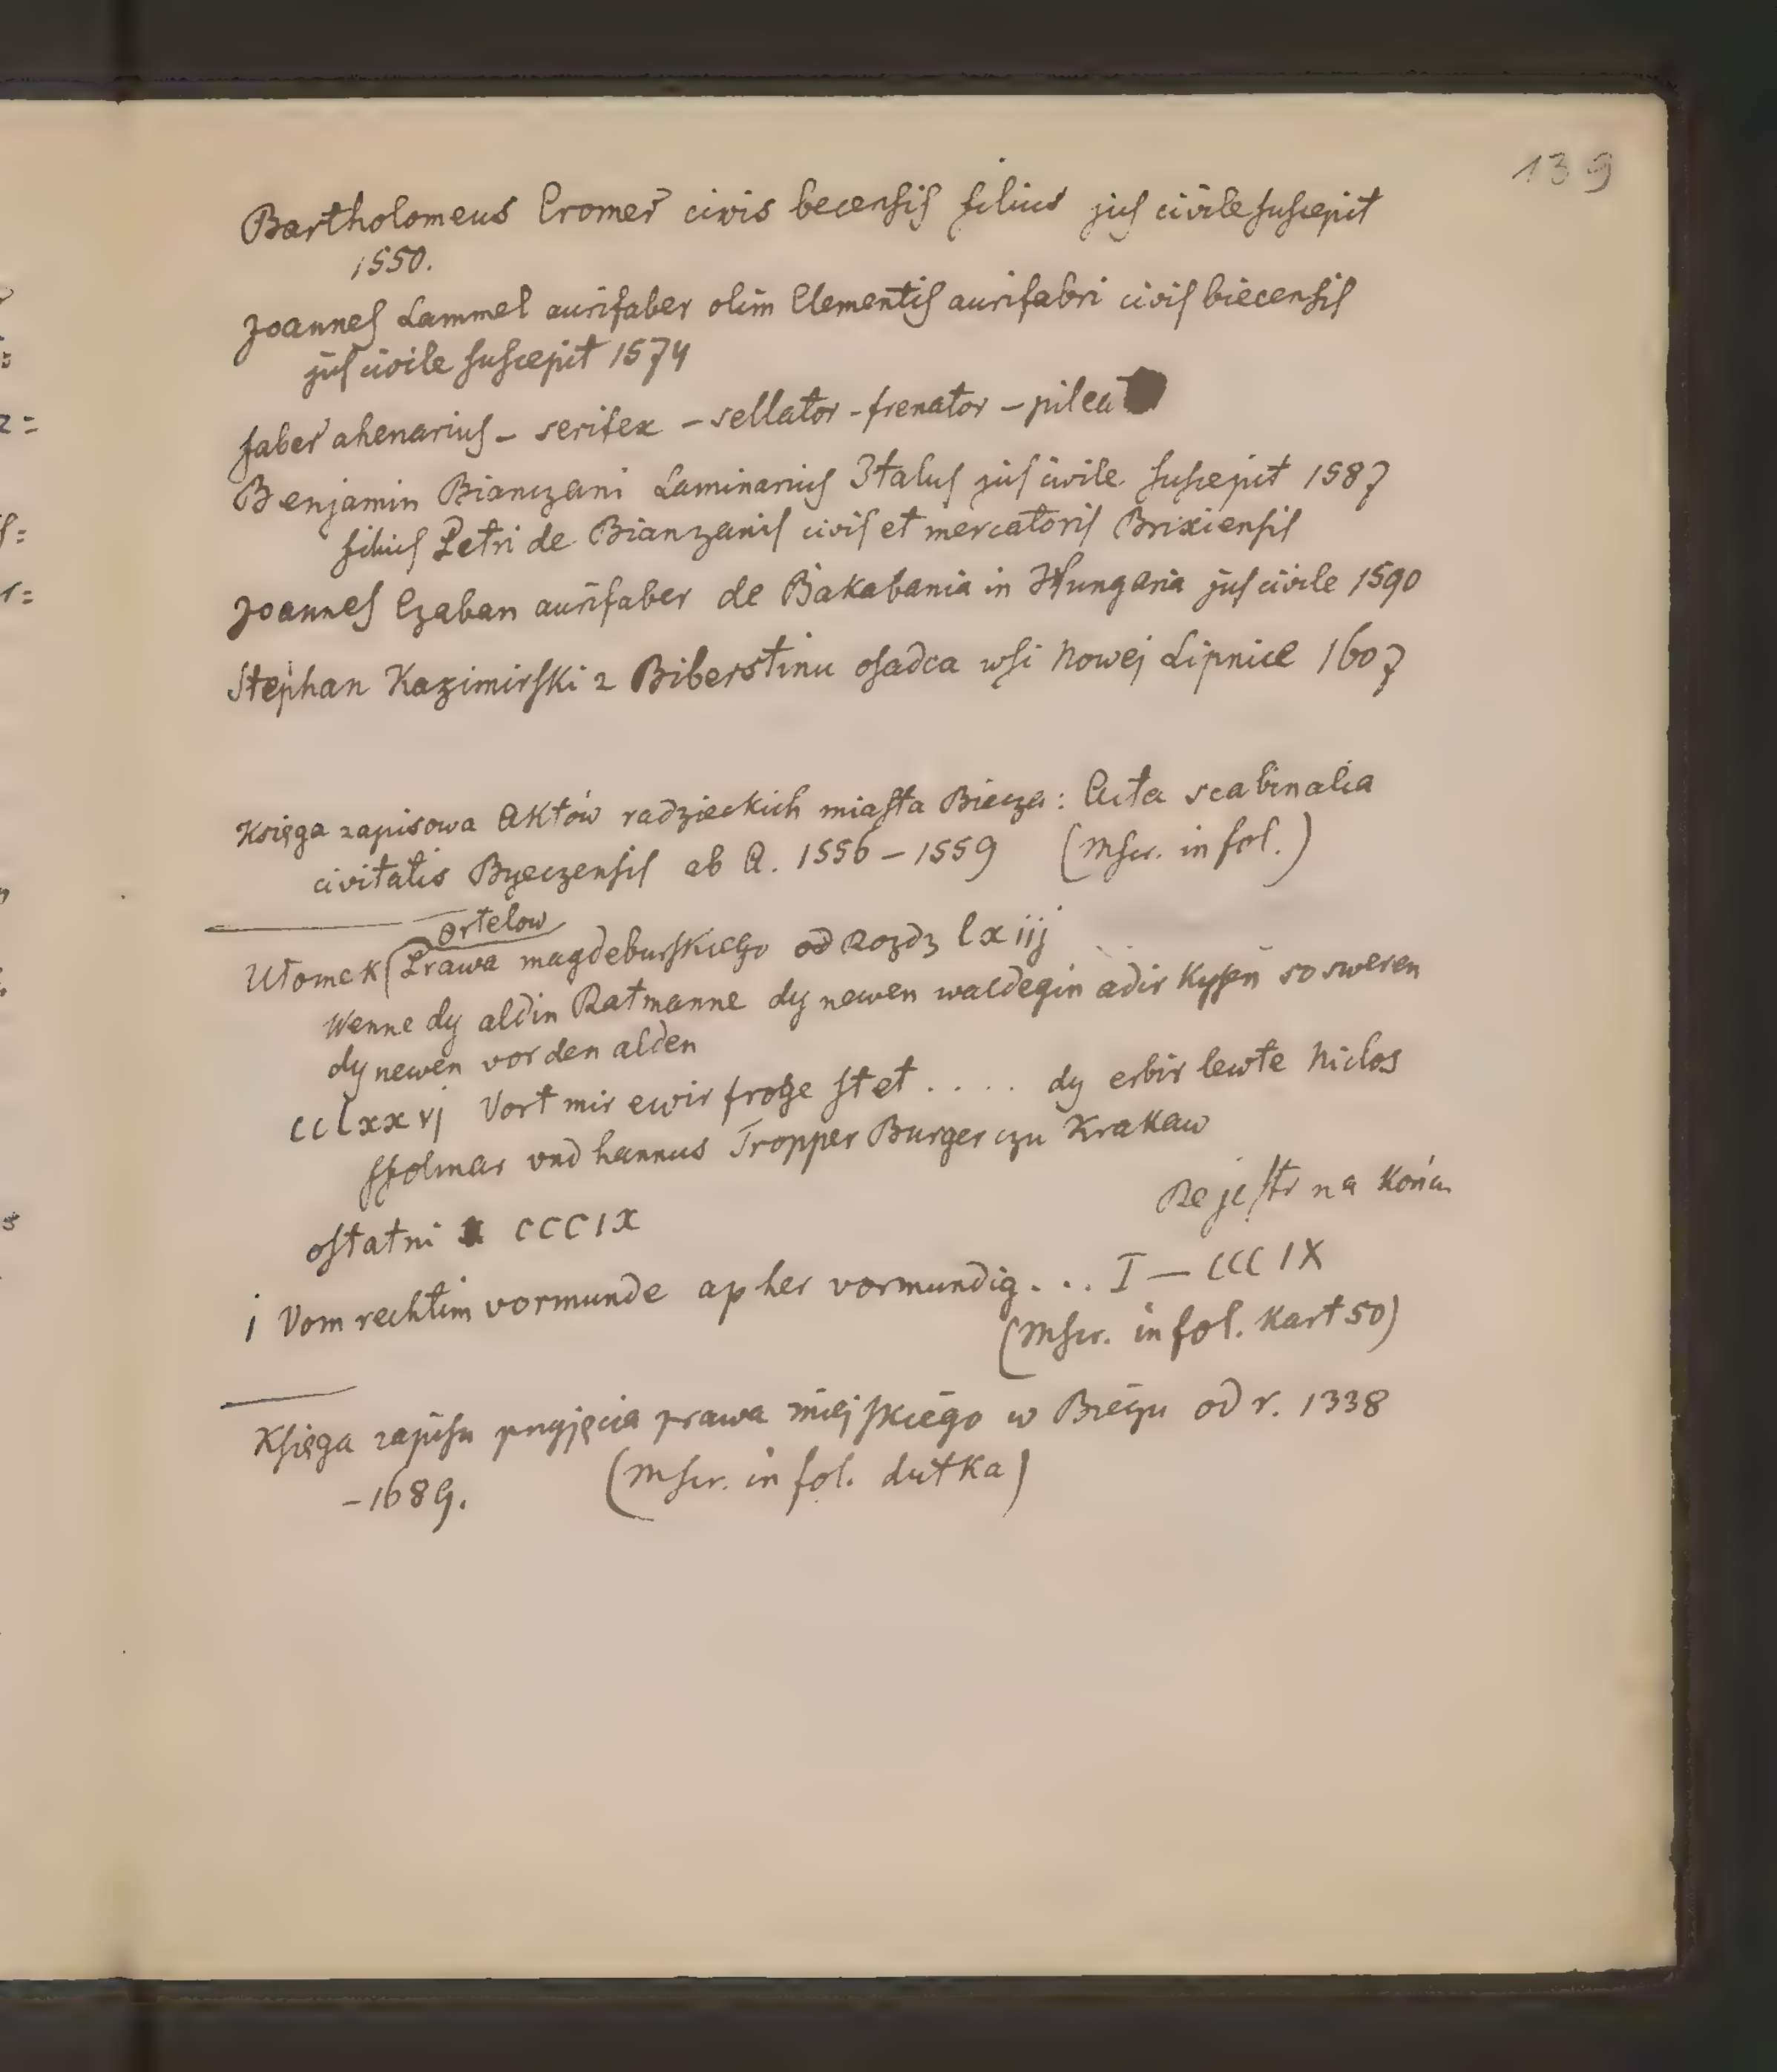 139
Bartholomeus Cromer civis becensis filius jus civile suscepit
1550.
Joannes Lammel aurifaber olim Clementis aurifabri civis biecensis
jus civile suscepit 1574
faber ahenarius – serifex – sellator – frenator – pilea
Benjamin Bianczani Laminarius Italus jus civile suscepit 1587
filius Petri de Bianzanis civis et mercatoris Brixiensis
Joannes Czaban aurifaber de Bakabania in Hungaria jus civile 1590
Stephan Kazimirski z Biberstinu osadca wsi Nowej Lipnice 1607
Księga zapisowa Aktów radzieckich miasta Biecza: Acta scabinalia
civitatis Byeczensis ab A. 1556 – 1559 (Mscr. in fol.)
ortelow
Ułomek Prawa magdeburskiego od Rozdz lxiij
Wenne dy aldin Ratmanne dy newen waldegin adir kysen so sweren
dy newen vor den alden
cclxxvj Vort mir ewir froge stet . . . . dy erbir lewte Niclos
vnd hannus Tropper Burger czu Krakaw
Rejestr na końcu
ostatni CCCIX
i Vom rechtim vormunde ap her vormundig . . . I – CCCIX
(Mscr. in fol. kart 50)
Księga zapisu przyjęcia prawa miejskiego w Bieczu od r. 1338
– 1689. (Mscr. in fol. dutka)